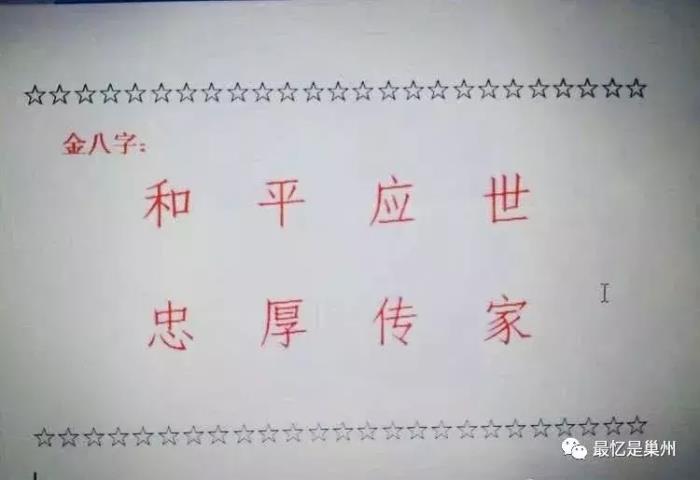 ☆☆☆☆☆☆☆☆☆☆☆☆☆☆☆☆☆☆☆☆☆☆☆☆☆
金八字：
和平应世
忠厚传家
☆☆☆☆☆☆☆☆☆☆☆☆☆☆☆☆☆☆☆☆☆☆☆☆☆
最忆是巢州